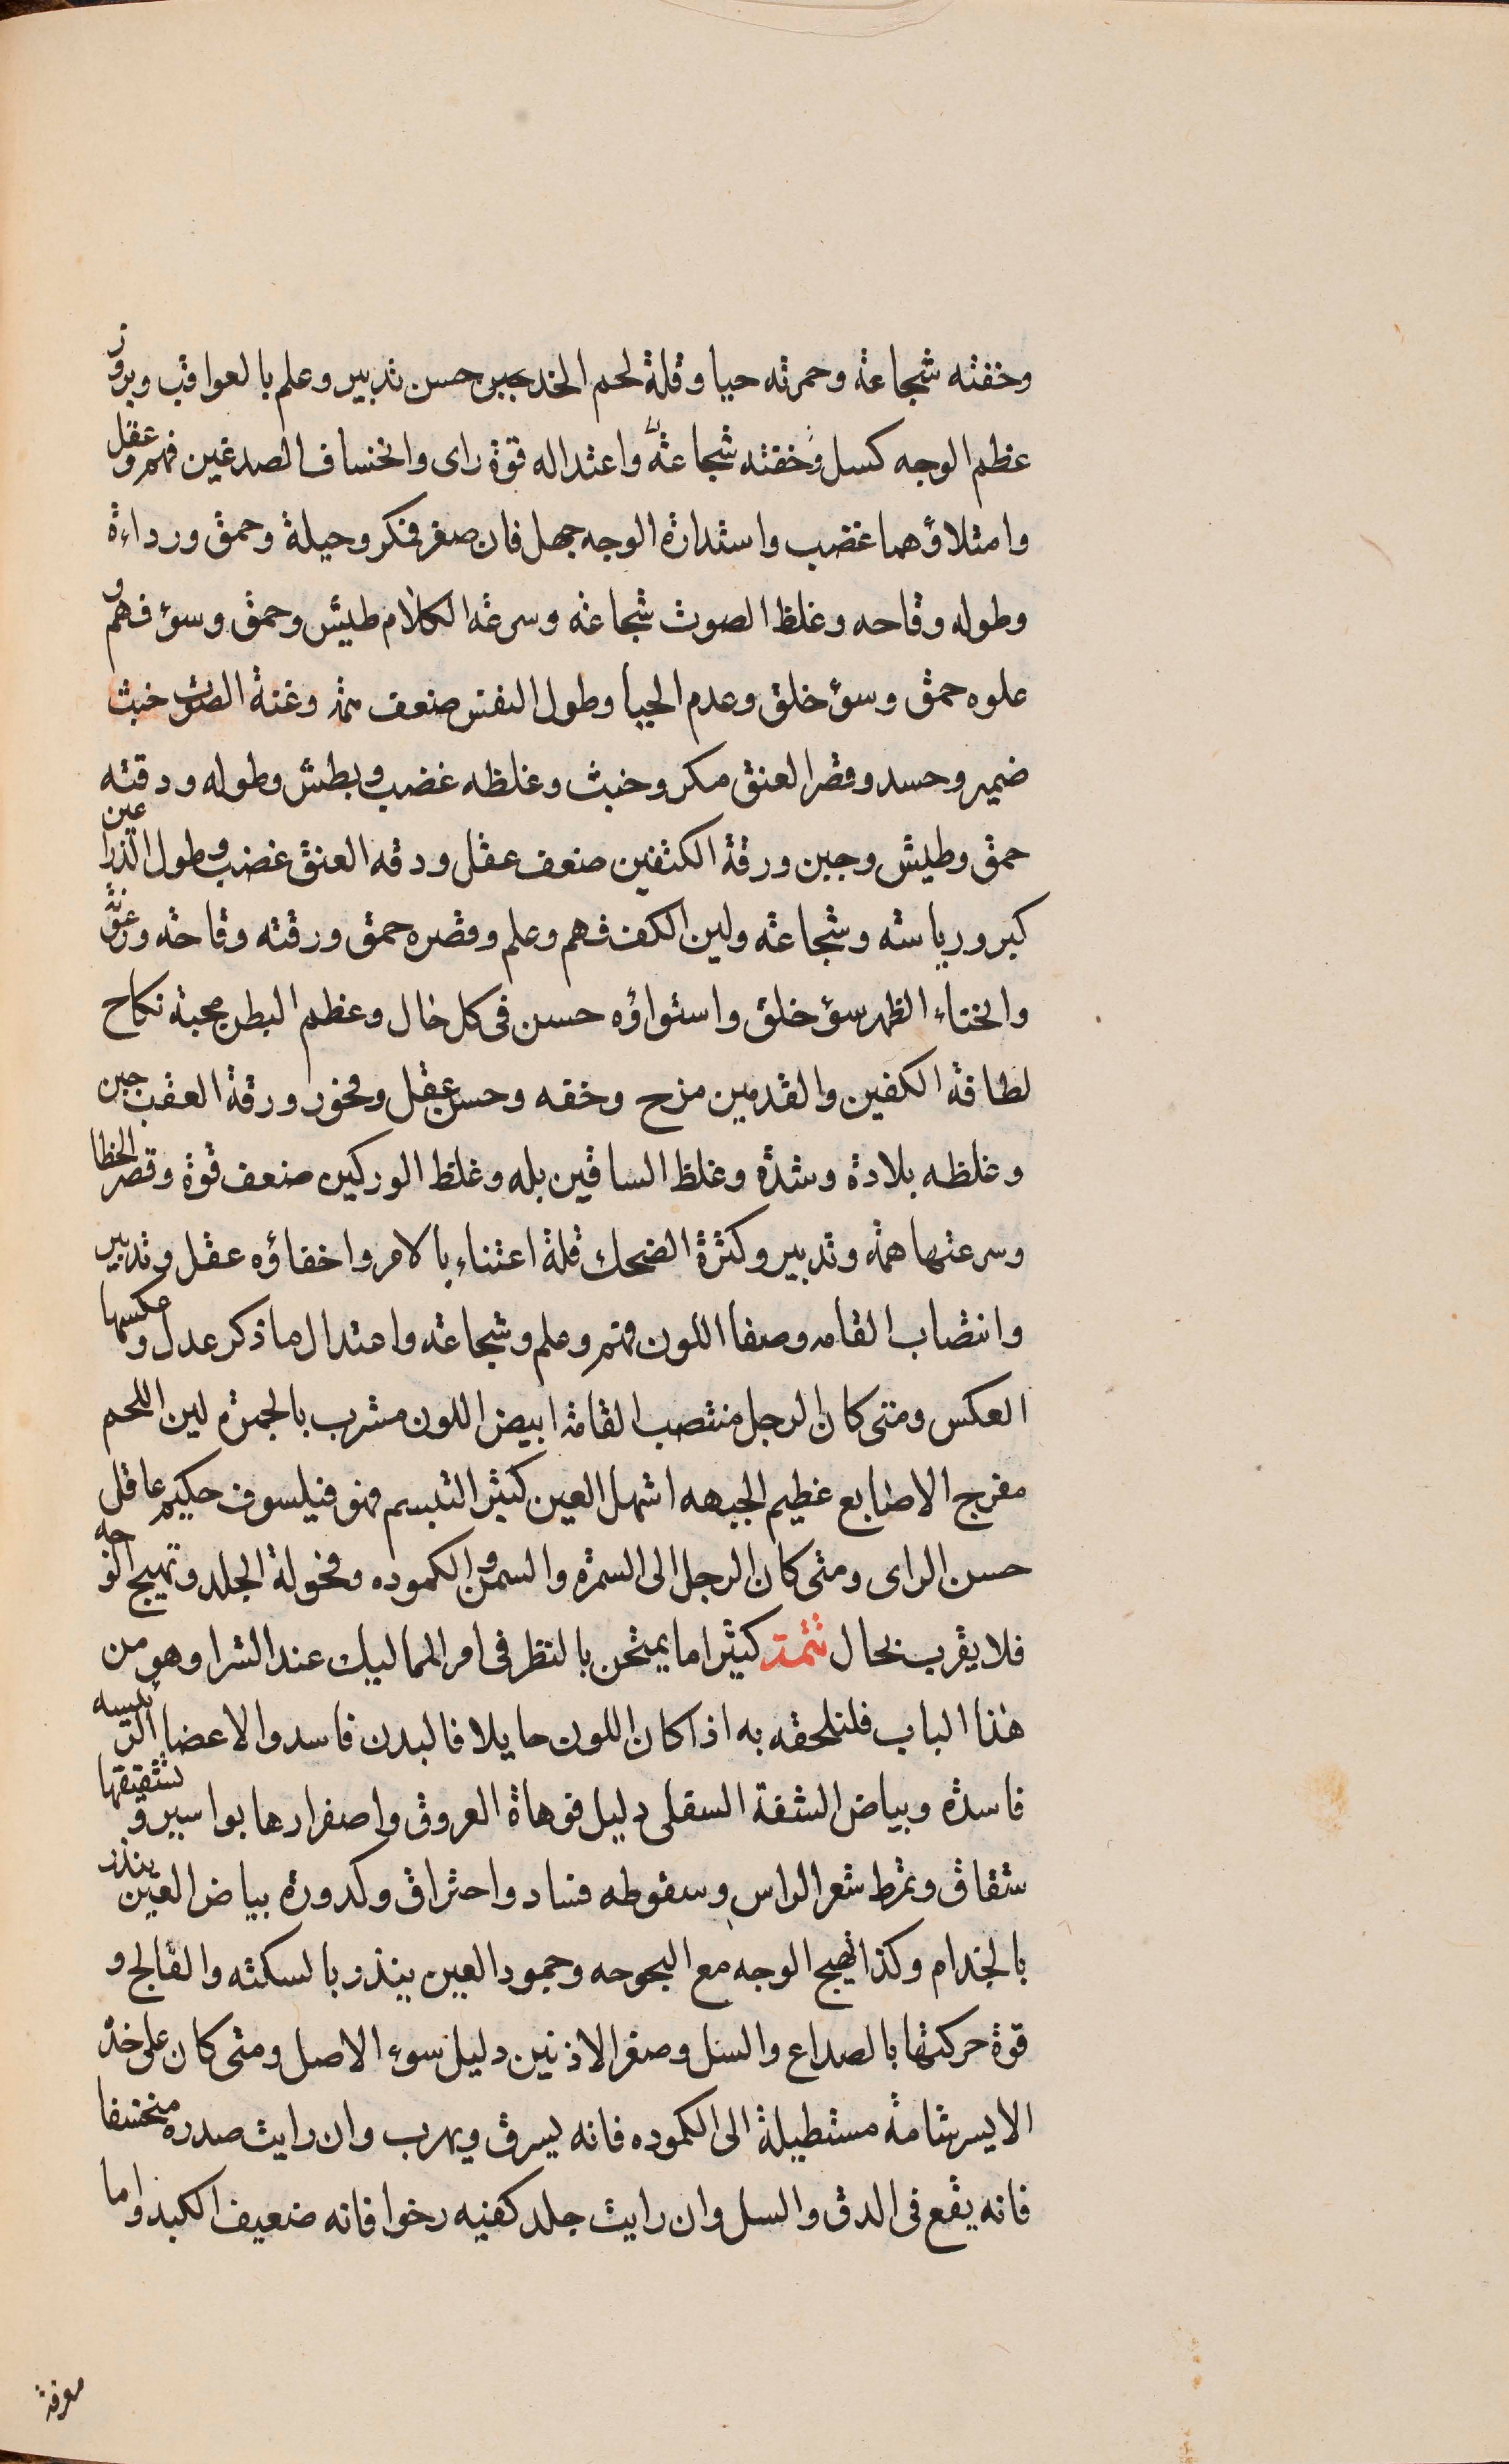 وخفته شجاعة وحمرته حيا وقلة لحم الخد جبن حسن تدبير وعلم بالعواقب وبروز
عظم الوجه كسل وخفته شجاعة واعتداله قوة راى وانخساف الصدغين فهم وعقل
وامتلاؤهما غضب واستدارة الوجه جهل فان صغر فمكر وحيلة وحمق ورداءة
وطوله وقاحه وغلظ الصوت شجاعة وسرعة الكلام طيش وحمق وسؤ فهم و
علوه حمق وسؤ خلق وعدم الحيا وطول النفس ضعف همة وغنة الصوت خبث
ضمير وحسد وقصر العنق مكر وخبث وغلظه غضب وبطش وطوله ودقته
حمق وطيش وجبن ورقة الكتفين ضعف عقل ودقه العنق غضب وطول الذراعين
كبر ورياسته وشجاعة ولين الكف فهم وعلم وقصره حمق ورقته وقاحة ورعونة
وانحناء الظهر سؤ خلق واستواؤه حسن فى كل حال وعظم البطن محبة نكاح
لطافة الكفين والقدمين مزح وخفه وحسن عقل وفخور ورقة العقب جبن
وغلظه بلادة وشدة وغلظ الساقين بله وغلظ الوركين ضعف قوة وقصر الخطا
وسرعتها همة وتدبير وكثرة الضحك قلة اعتناء بالامر واخفاؤه عقل وتدبير
وانتصاب القامه وصفا اللون فهم وعلم وشجاعة واعتدال ما ذكر عدل وعكسها
العكس ومتى كان الرجل منتصب القامة ابيض اللون مشرب بالحمرة لين اللحم
مفرج الاصابع عظيم الجبهه اشهل العين كثير التبسم فهو فيلسوف حكيم عاقل
حسن الراى ومتى كان الرجل الى السمرة والسمن والكموده وفحولة الجلد وتهيج الوجه
فلا يقرب بحال تتمة كثيرا ما يمتحن بالنظر فى امر المماليك عند الشرا وهو من
هذا الباب فلنلحقه به اذا كان اللون حايلا فالبدن فاسد والاعضا الرئيسه
فاسدة وبياض الشفة السفلى دليل فوهاة العروق واصفرارها بواسير وتشقيقها
شقاق وتمرط شعر الراس وسقوطه فساد واحتراق وكدورة بياض العين ينذر
بالجذام وكذا تهيج الوجه مع البحوحه وجمود العين ينذر بالسكته والفالج و
قوة حركتها بالصداع والسل وصغر الاذنين دليل سوء الاصل ومتى كان على خده
الايسر شامة مستطيلة الى الكموده فانه يسرق ويهرب وان رايت صدره منخسفا
فانه يقع فى الدق والسل وان رايت جلد كفيه رخوا فانه ضعيف الكبد واما
معرفة